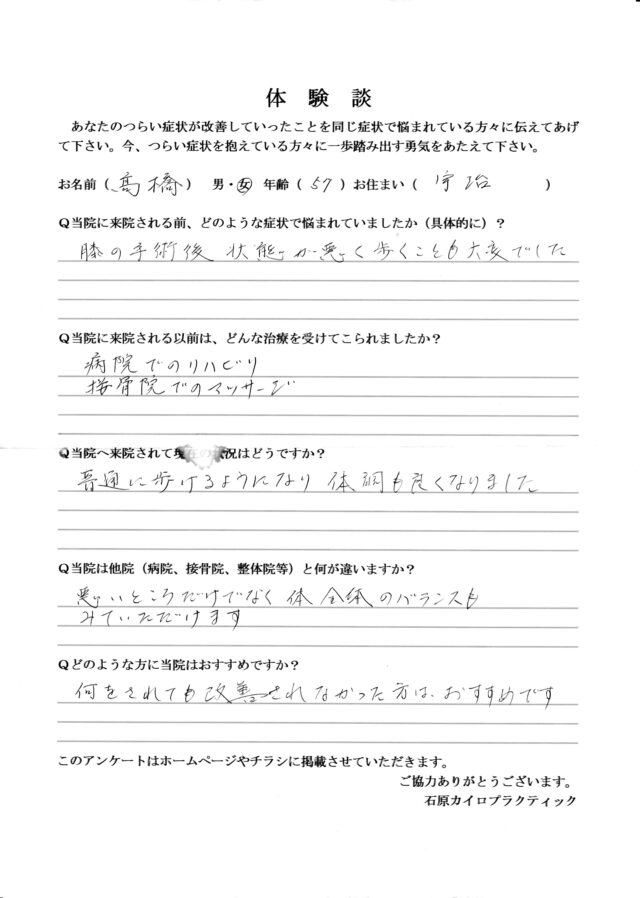 体 験 談
あなたのつらい症状が改善していったことを同じ症状で悩まれている方々に伝えてあげ
て下さい。今、つらい症状を抱えている方々に一歩踏み出す勇気をあたえて下さい。
お名前（髙橋） 男・女 年齢（57）お住まい（宇治）
Q当院に来院される前、どのような症状で悩まれていましたか（具体的に）？
膝の手術後 状態が悪く歩くことも大変でした
Q当院に来院される以前は、どんな治療を受けてこられましたか？
病院でのリハビリ
接骨院でのマッサージ
Q当院へ来院されて現在の状況はどうですか？
普通に歩けるようになり 体調も良くなりました
Q当院は他院（病院、接骨院、整体院等）と何が違いますか？
悪いところだけでなく 体全体のバランスも
みていただけます
Qどのような方に当院はおすすめですか？
何をされても改善されなかった方は、おすすめです
このアンケートはホームページやチラシに掲載させていただきます。
ご協力ありがとうございます。
石原カイロプラクティック